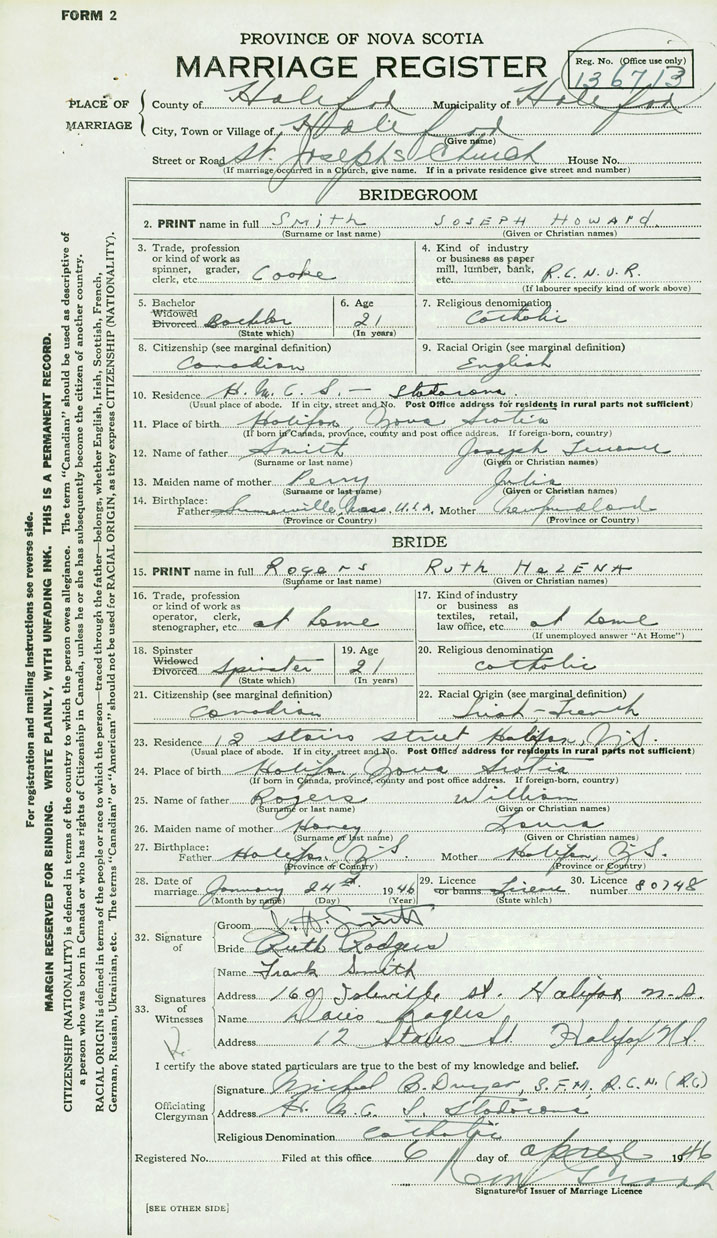 FORM 2
PROVINCE OF NOVA SCOTIA
MARRIAGE REGISTER
Reg. No. (Office use only)
136713
PLACE OF MARRIAGE
County of Halifax Municipality of Halifax
City, Town or Village of Halifax
(Give name)
Street or Road St. Josephs Church House No.
(If marriage occurred in a Church, give name. If in a private residence give street and number)
BRIDEGROOM
2. PRINT name in full Smith JOSEPH HOWARD.
(Surname or last name) (Given or Christian names)
3. Trade, profession or kind of work as spinner, grader, clerk, etc. Cooke
4. Kind of industry or business as paper mill, lumber, bank, etc. R.C.N.V.R.
(If labourer specify kind of work above)
5. Bachelor Widowed Divorced Bachlor
(State which)
6. Age 21
(In years)
7. Religious denomination Catholic
8. Citizenship (see marginal definition) Canadian
9. Racial Origin (see marginal definition) English
10. Residence H.M.C.S. — Stadacona
(Usual place of abode. If in city, street and No. Post Office address for residents in rural parts not sufficient)
11. Place of birth Halifax, Nova Scotia
(If born in Canada, province, county and post office address. If foreign-born, country)
12. Name of father Smith Joseph
(Surname or last name) (Given or Christian names)
13. Maiden name of mother Perry Julia
(Surname or last name) (Given or Christian names)
14. Birthplace: Father Sumerville, Mass. U.S.A. Mother Newfundland
(Province or Country) (Province or Country)
BRIDE
15. PRINT name in full Rogers RUTH HELENA
(Surname or last name) (Given or Christian names)
16. Trade, profession or kind of work as operator, clerk, stenographer, etc. at home
17. Kind of industry or business as textiles, retail, law office, etc. at home
(If unemployed answer "At Home")
18. Spinster Widowed Divorced Spinster
(State which)
19. Age 21
(In years)
20. Religious denomination Catholic
21. Citizenship (see marginal definition) Canadian
22. Racial Origin (see marginal definition) Irish-French
23. Residence 12 Stairs Street Halifax, N.S.
(Usual place of abode. If in city, street and No. Post Office address for residents in rural parts not sufficient)
24. Place of birth Halifax, Nova Scotia
(If born in Canada, province, county and post office address. If foreign-born, country)
25. Name of father Rogers William
(Surname or last name) (Given or Christian names)
26. Maiden name of mother Laura
(Surname or last name) (Given or Christian names)
27. Birthplace: Father Halifax, N.S. Mother Halifax, N.S.
(Province or Country) (Province or Country)
28. Date of marriage January 24 1946
(Month by name) (Day) (Year)
29. Licence or banns License
(State which)
30. Licence number 80748
32. Signature of
Groom J. H. Smith
Bride Ruth Rodgers
33. Signatures of Witnesses
Name Frank Smith
Address 169 St. Halifax N.S.
Name
Address 12 Stairs St. Halifax N.S.
I certify the above stated particulars are true to the best of my knowledge and belief.
Officiating Clergyman
Signature Michael B. Dwyer, S.F.M. R.C.N. (R.C)
Address H.M.C.S. Stadacona
Religious Denomination Catholic
Registered No. Filed at this office 6 day of April 1946
Signature of Issuer of Marriage Licence
[SEE OTHER SIDE]
For registration and mailing instructions see reverse side.
MARGIN RESERVED FOR BINDING. WRITE PLAINLY, WITH UNFADING INK. THIS IS A PERMANENT RECORD.
CITIZENSHIP (NATIONALITY) is defined in terms of the country to which the person owes allegiance. The term "Canadian" should be used as descriptive of
a person who was born in Canada or who has rights of Citizenship in Canada, unless he or she has subsequently become the citizen of another country.
RACIAL ORIGIN is defined in terms of the people or race to which the person—traced through the father—belongs, whether English, Irish, Scottish, French,
German, Russian, Ukrainian, etc. The terms "Canadian" or "American" should not be used for RACIAL ORIGIN, as they express CITIZENSHIP (NATIONALITY).